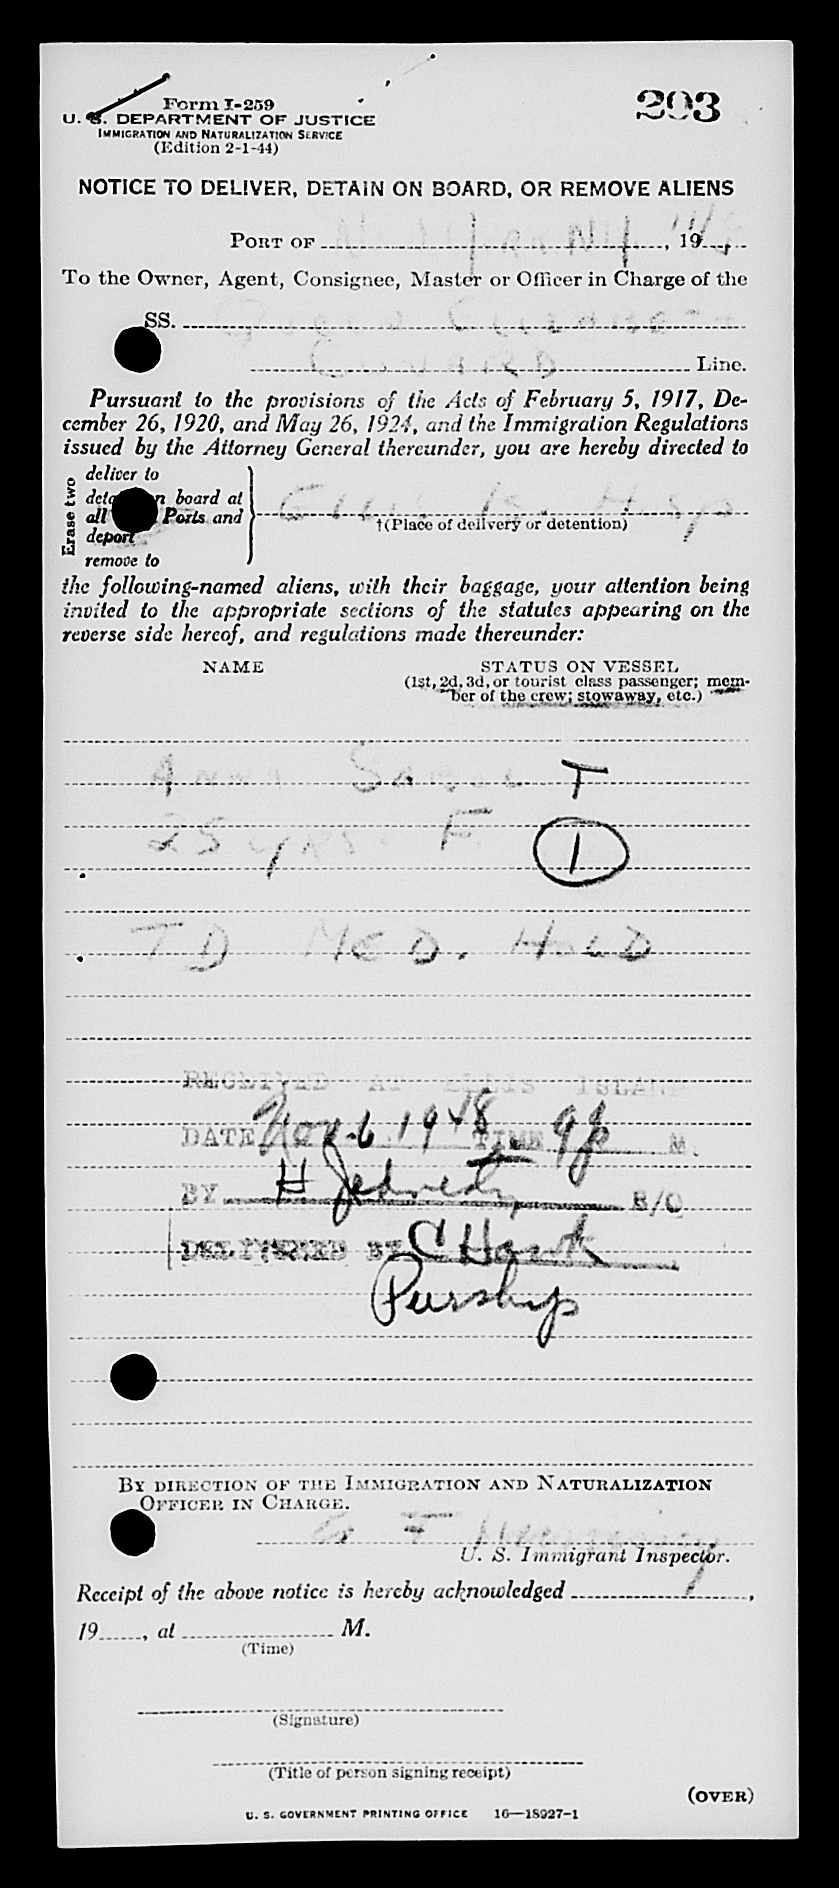 Form I-259
293
U. S. DEPARTMENT OF JUSTICE
IMMIGRATION AND NATURALIZATION SERVICE
(Edition 2-1-44)
NOTICE TO DELIVER, DETAIN ON BOARD, OR REMOVE ALIENS
PORT OF , 19
To the Owner, Agent, Consignee, Master or Officer in Charge of the
SS. Queen
CUNARD Line.
Pursuant to the provisions of the Acts of February 5, 1917, De-
cember 26, 1920, and May 26, 1924, and the Immigration Regulations
issued by the Attorney General thereunder, you are hereby directed to
Erase two
deliver to
on board at
all Ports and
deport
remove to
Ellis Is. Hosp
†(Place of delivery or detention)
the following-named aliens, with their baggage, your attention being
invited to the appropriate sections of the statutes appearing on the
reverse side hereof, and regulations made thereunder:
NAME STATUS ON VESSEL
(1st, 2d, 3d, or tourist class passenger; mem-
ber of the crew; stowaway, etc.)
Anna T
25 YRS. F. 1
TD MED. HOLD
RECEIVED AT ELLIS ISLAND
DATE Nov. 6 1948 TIME 9 M.
BY H B/O
DELIVERED BY C Hawk
BY DIRECTION OF THE IMMIGRATION AND NATURALIZATION
OFFICER IN CHARGE.
U. S. Immigrant Inspector.
Receipt of the above notice is hereby acknowledged ,
19 , at M.
(Time)
(Signature)
(Title of person signing receipt)
(OVER)
U. S. GOVERNMENT PRINTING OFFICE 16—18927-1